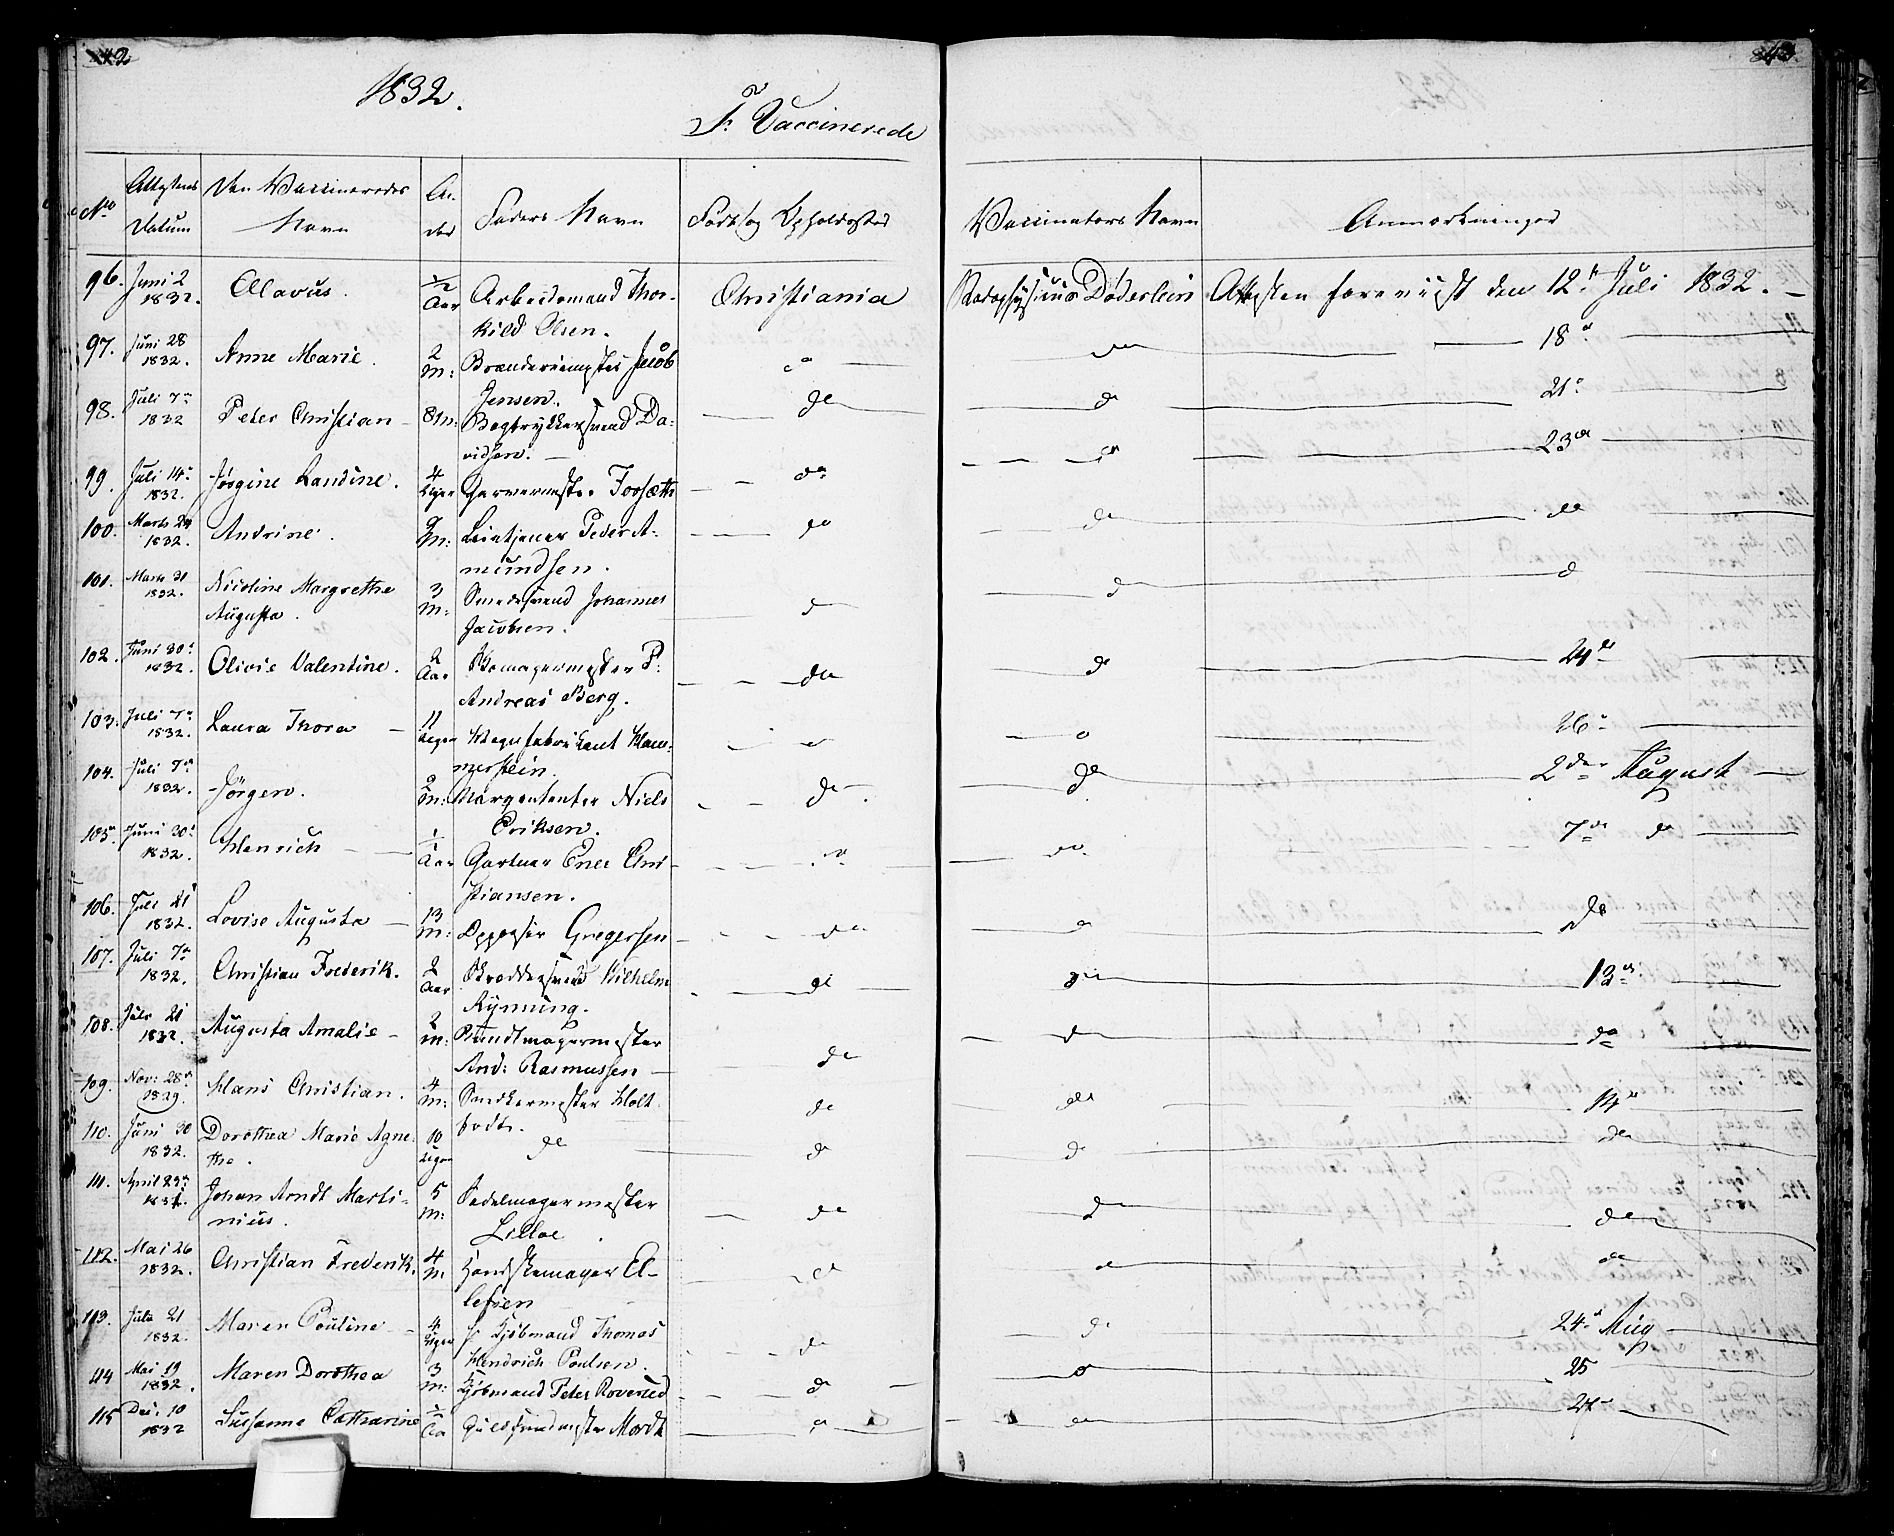 42
1832.
F: Vaccinerede
No Attestens Datum Den Vaccineredes Navn Al- der Faders Navn Føde- og Opholdssted Vaccinators Navn Anmærkninger
96. Juni 2 1832. Olavus. ½ Aar Arbeidsmand Thor- kild Olsen. Christiania Stadsphysicus Døderlein Attesten foreviist den 12te Juli 1832.
97. Juni 28 1832. Anne Marie. 2 M: Brænderiemester Jacob Jensen. do do 18de
98. Juli 7de 1832 Peter Christian 8 M: Bogtrykkersvend Da- vidsen. do do 21de
99. Juli 14de 1832. Jørgine Landine. 4 Uger Garvermester Forsæth do do 23de
100. Marts 24 1832. Andrine. 9 M: Leietjener Peder A- mundsen. do do do
101. Marts 31 1832. Nicoline Margrethe Augusta. 3 M: Smedesvend Johannes Jacobsen. do do do
102. Juni 30te 1832. Olivie Valentine. 2 Aar Skomagermester P. Andreas Berg. do do 24de
103. Juli 7de 1832. Laura Thora 11 Uger Vognfabrikant Ham- merstein. do do 26de
104. Juli 7de 1832. Jørgen. 9 M: Marqententer Niels Eriksen. do do 2den August
105. Juni 30te 1832. Henrich 1 Aar Gartner Ener Chri- stiansen. do do 7de do
106. Juli 21 1832. Lovise Augusta 13 M: Oppasser Gregersen do do do
107. Juli 7de 1832. Christian Frederik. 2 Aar Skreddersvend Vilhelm Rynning. do do 13de
108. Juli 21 1832. Augusta Amalie 2 M: Buntmagermester And: Rasmussen do do do
109. Nov: 28de 1829. Hans Christian. 4 M: Snedkermester Holt- fodt. do do 14de
110. Juni 30 1832. Dorothea Marie Agne- the. 10 Uger do do do do
111. April 23de 1831. Johan Arndt Marti- nius. 5 M: Sadelmagermester Lilloe. do do do
112. Mai 26 1832. Christian Frederik. 4 M Handskemager El- lefsen do do do
113. Juli 21 1832. Maren Pouline 4 Uger f. Kjøbmand Thomas Hendrich Poulsen. do do 24de Aug
114 Mai 19 1832. Maren Dorothea 3 M: Kjøbmand Peter Roversted do do 25
115 Dec. 10 1832 Susanne Catharine ½ Aa Guldsmedmester Mordt do do 27